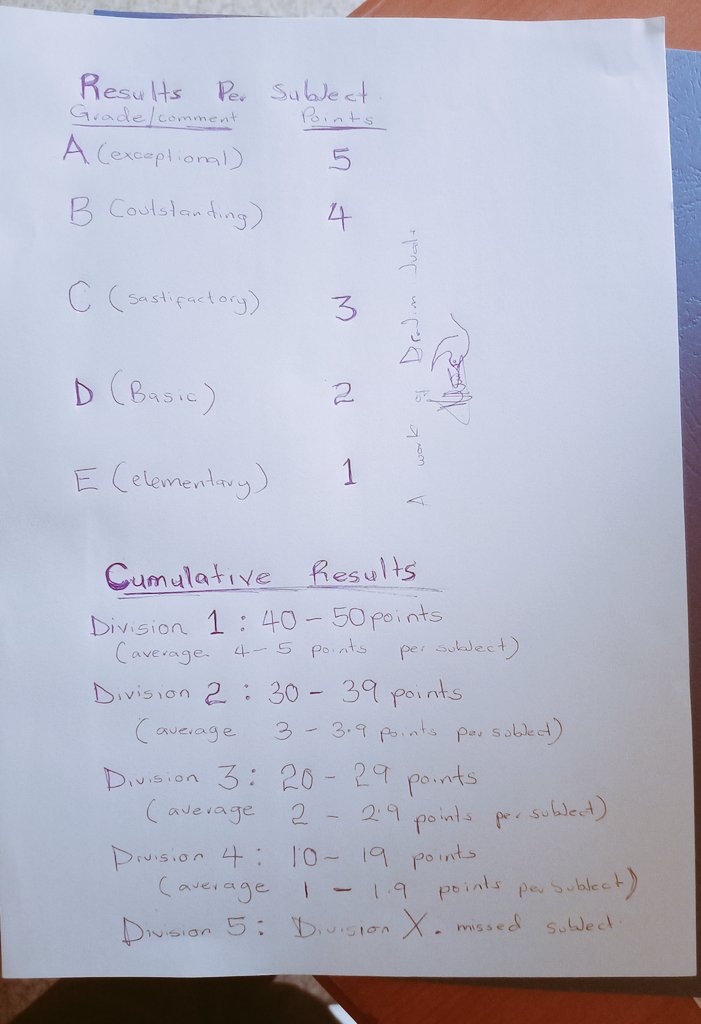 Results Per Subject.
Grade/comment Points
A (exceptional) 5
B (outstanding) 4
C (sastifactory) 3
D (Basic) 2
E (elementary) 1
A work of
Cumulative Results
Division 1 : 40 - 50 points
(average 4 - 5 points per subject)
Division 2 : 30 - 39 points
(average 3 - 3.9 points per subject)
Division 3 : 20 - 29 points
(average 2 - 2.9 points per subject)
Division 4 : 10 - 19 points
(average 1 - 1.9 points per subject)
Division 5 : Division X. missed subject.